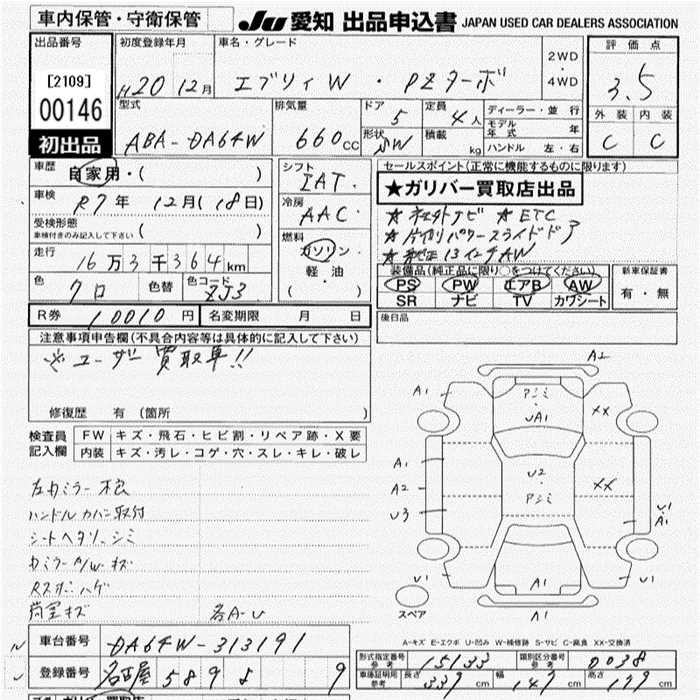 車内保管・守衛保管
JU 愛知 出品申込書 JAPAN USED CAR DEALERS ASSOCIATION
出品番号
[2109]
00146
初出品
初度登録年月
H20 12月
車名・グレード
エブリィW ・ PZターボ
2WD
・
4WD
評価点
3.5
外装 内装
C C
型式
ABA-DA64W
排気量
660cc
ドア
5
形状
SW
定員
4人
積載
kg
ディーラー・並行
モデル年式 年
ハンドル 左・右
車歴 自家用・( )
車検 R7年 12月(18日)
受検形態
車検付きのみ記入して下さい ( )
走行
16万3千364km
色 クロ
色替
色コード ZJ3
R券 10010円
名変期限 月 日
シフト
IAT.
冷房
AAC.
燃料
ガソリン・
軽油・
( )
セールスポイント(正常に機能するものに限ります)
★ガリバー買取店出品
★社外ナビ ★ETC
★片側パワースライドドア
★純正13インチAW
装備品(純正品に限り○をつけてください)
PS PW エアB AW
SR ナビ TV カワシート
新車保証書
有・無
後日品
注意事項申告欄(不具合内容等は具体的に記入して下さい)
※ユーザー買取車!!
修復歴 有 (箇所 )
検査員
記入欄
FW キズ・飛石・ヒビ割・リペア跡・X要
内装 キズ・汚レ・コゲ・穴・スレ・キレ・破レ
左カミラー不良
ハンドルカバー取付
シートヘタリ、シミ
カミラーA/Wキズ
ハゲ
荷室キズ 各A-U
A2
A1
アンミ
・
UA1
XX
A1
A2
U3
U2
・
アンミ
XX
U1
A1
U1
A1
U1
スペア
A1
A-キズ E-エクボ U-凹み W-補修跡 S-サビ C-腐食 XX-交換済
車台番号 DA64W-313191
登録番号 名古屋 589 よ 9
形式指定番号
参考 15133
類別区分番号
参考 0038
車庫証明用
参考
長さ 339cm
幅 147cm
高さ 179cm